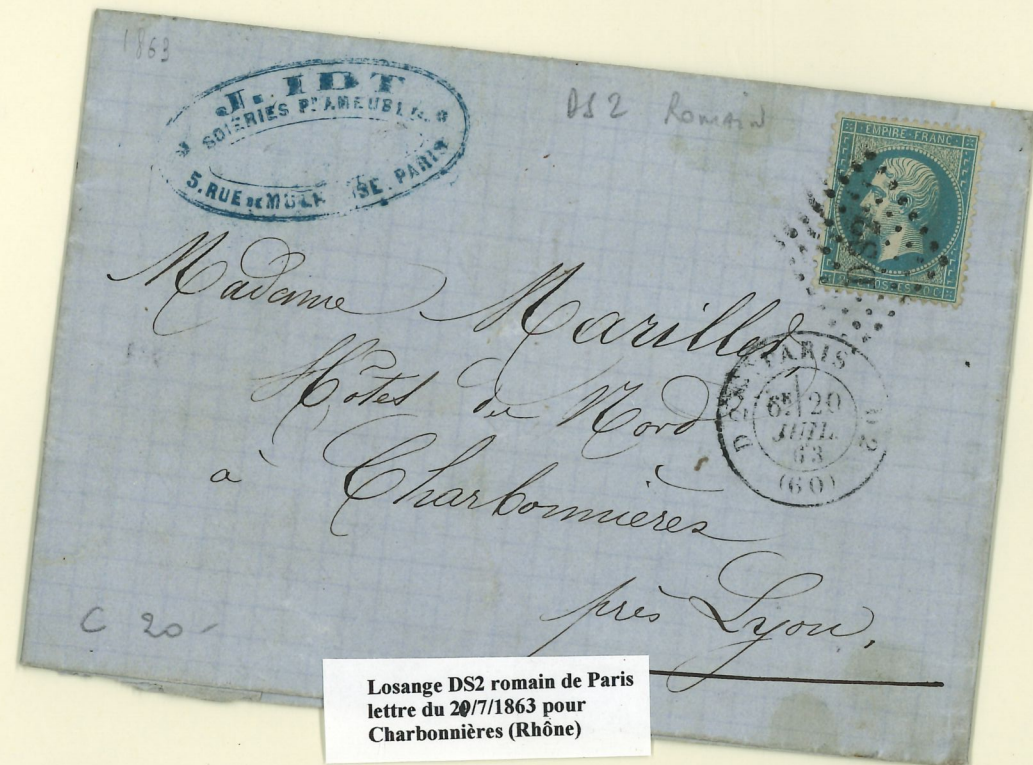 1863
J. IDT
SOIERIES Pr AMEUBLts
5. RUE DE PARIS
DS2 ROMAIN
EMPIRE FRANC
DS2
Madame Marillet
Hôtel du Nord
à Charbonnières
près Lyon,
PARIS
DS2
6E 20
JUIL.
63
(60)
C 20-
Losange DS2 romain de Paris
lettre du 20/7/1863 pour
Charbonnières (Rhône)